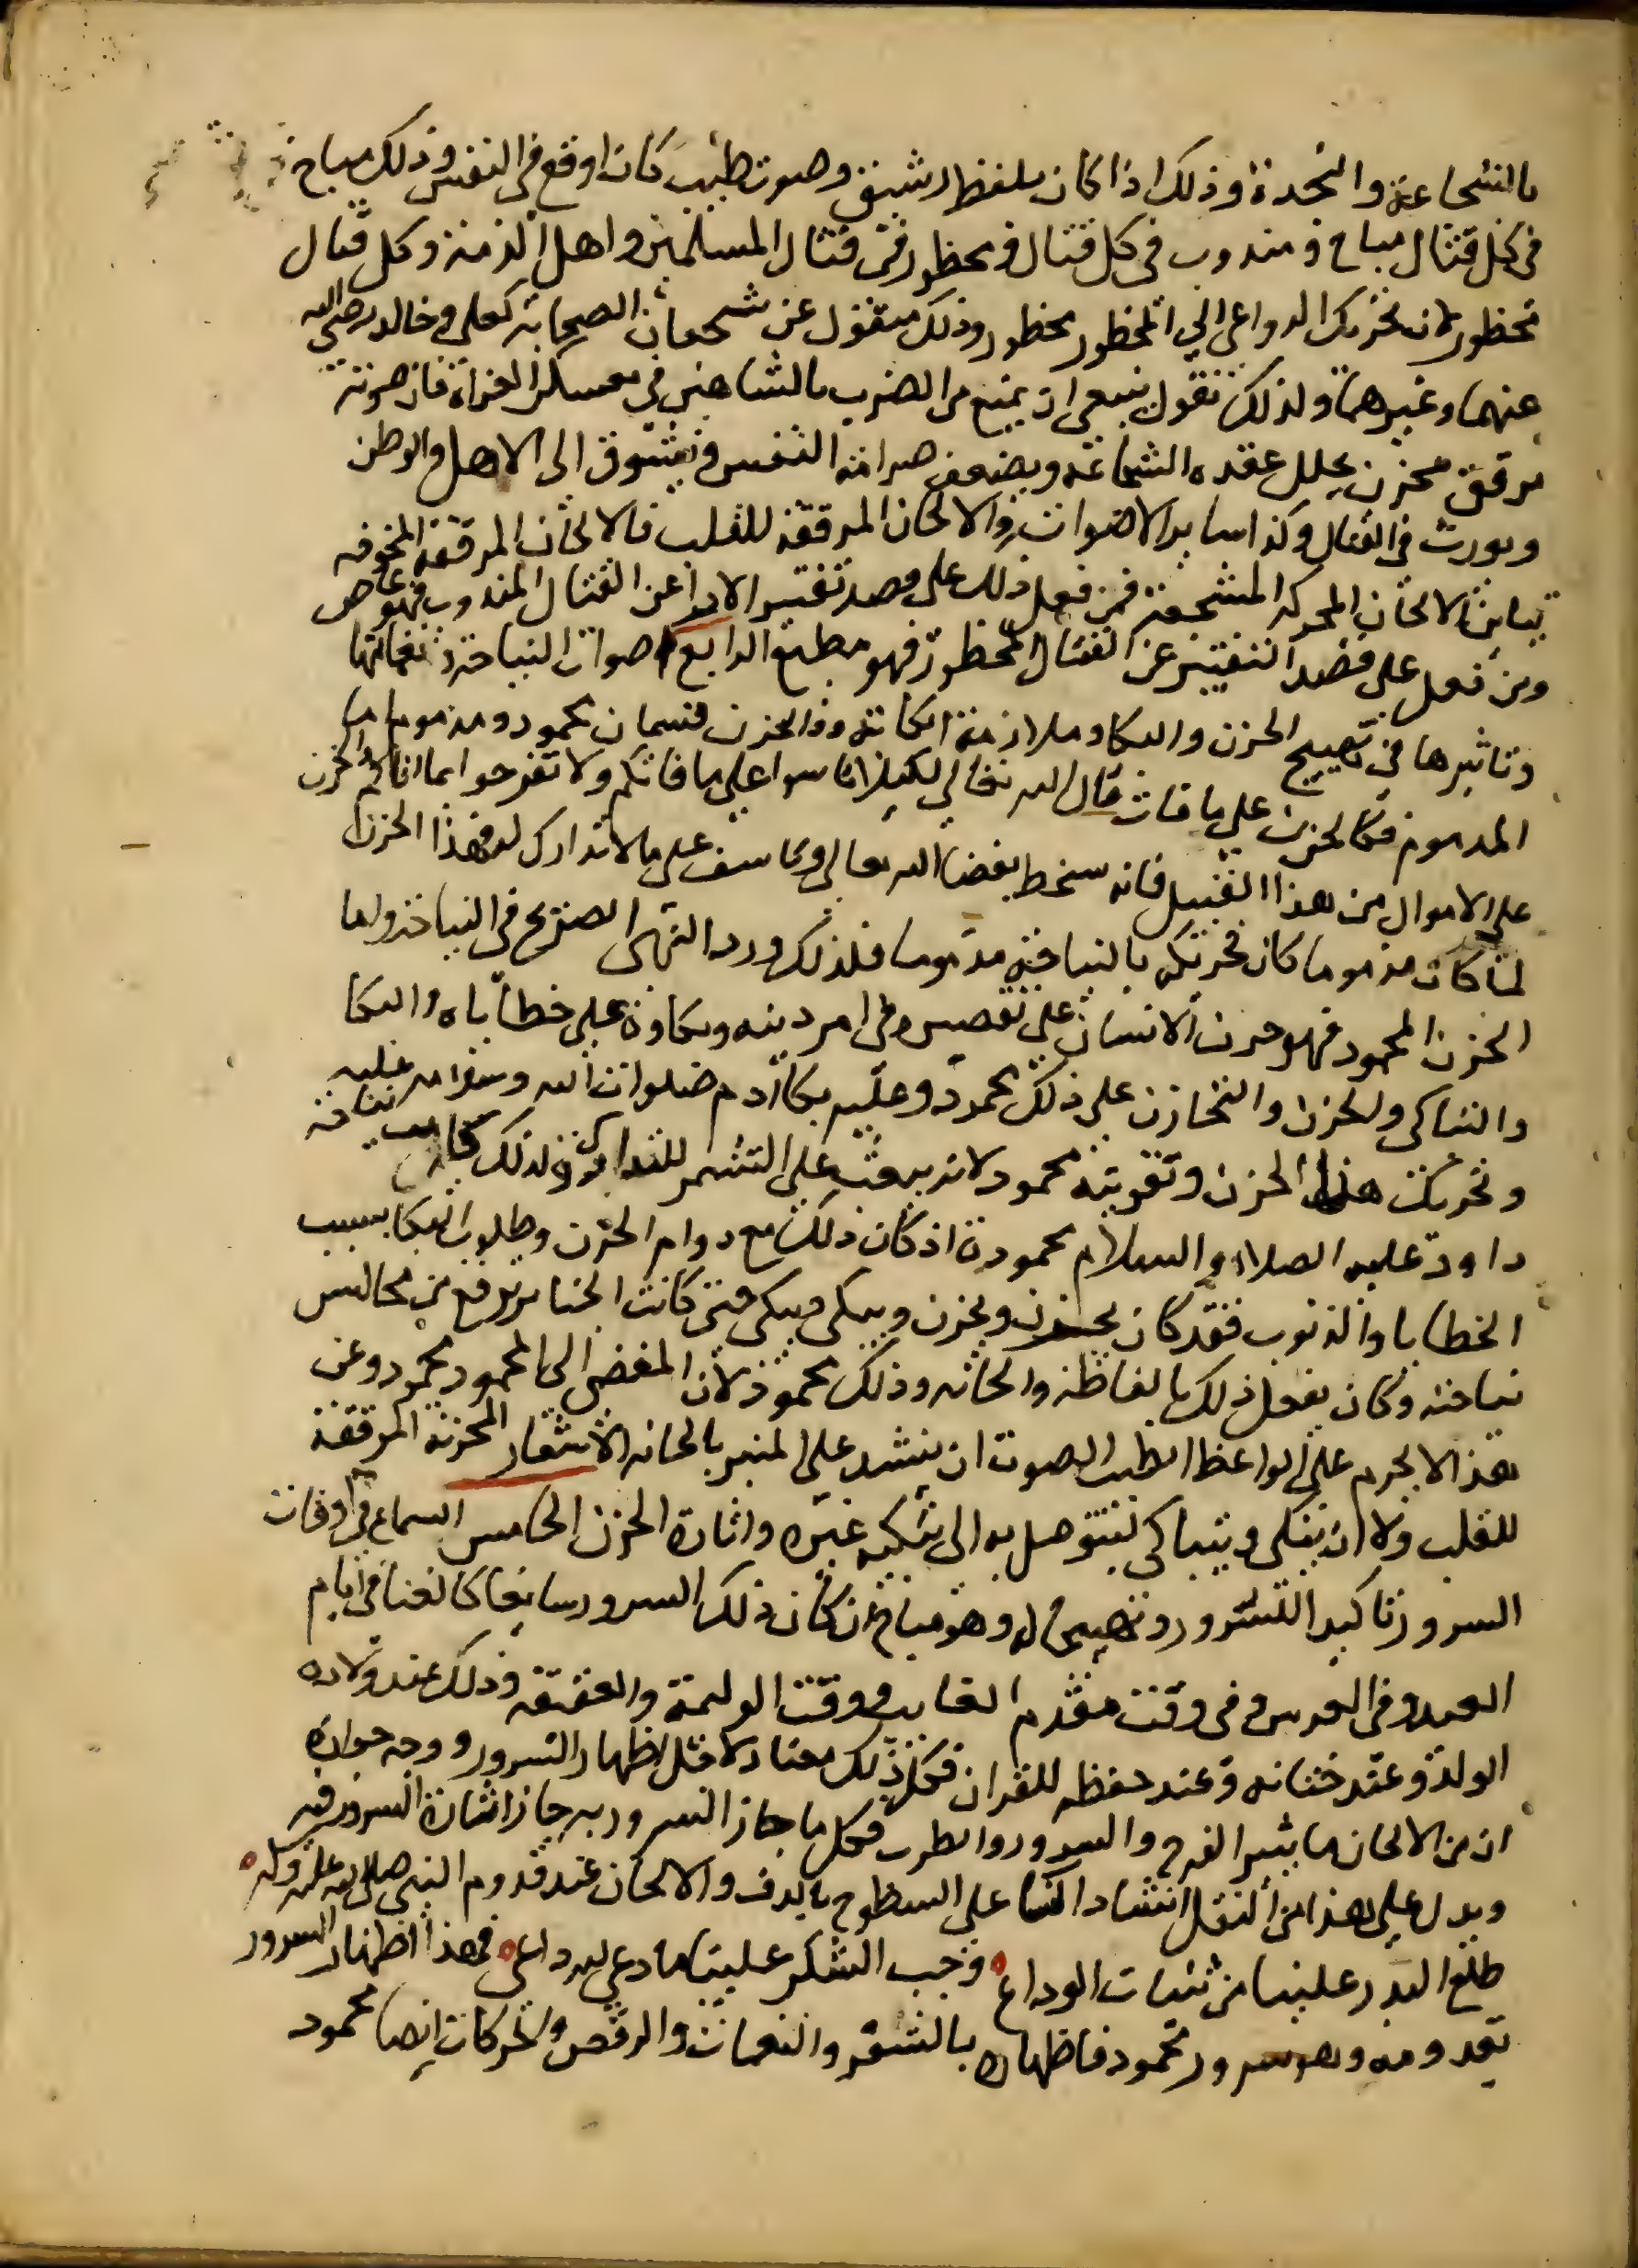 بالشجاعة والنجدة وذلك اذا كان بلفظ رشيق وصوت طيب كان اوقع في النفس وذلك مباح
في كل قتال مباح ومندوب في كل قتال ومحظور في قتال المسلمين واهل الذمة وكل قتال
محظور لان تحريك الدواعي الي المحظور محظور وذلك منقول عن شجعان الصحابة كعلي وخالد رضي الله
عنهما وغيرهما ولذلك نقول ينبغي ان يمنع من الضرب بالشاهين في معسكر الغزاة فان صوته
مرقق محزن يحلل عقدة الشجاعة ويضعف صرامة النفس ويشوق الى الاهل والوطن
ويورث في القتال وكذا ساير الاصوات والالحان المرققة للقلب فالالحان المرققة المخوفه
تباين الالحان المحركه المشجعة فمن فعل ذلك على قصد تفتير الارا عن القتال المندوب فهو عاص
ومن فعل على قصد التفتير عن القتال المحظور فهو مطيع الرابع اصوات النياحة ونغماتها
وتاثيرها في تهييج الحزن والبكا وملازمة الكابة والحزن قسمان محمود ومذموم اما
المذموم فكالحزن على ما فات قال الله تعالي لكيلا تاسوا علي ما فاتكم ولا تفرحوا بما اتاكم والحزن
على الاموال من هذا القبيل فانه سخط بقضا الله تعالى وتاسف على ما لا تدارك له فهذا الحزن
لما كان مذموما كان تحريكه بالنياحة مذموما فلذلك ورد النهى الصريح في النياحة واما
الحزن المحمود فهو حزن الانسان على تقصيره في امر دينه وبكاوه على خطاياه والبكا
والتباكى والحزن والتحازن على ذلك محمود وعليه بكا ادم صلوات الله وسلامه عليه
وتحريك هذا الحزن وتقويته محمود لانه يبعث على التشمر للتدارك ولذلك كانت نياحة
داود عليه الصلاة والسلام محمودة اذ كان ذلك مع دوام الحزن وطلوب البكا بسبب
الخطايا والذنوب فقد كان يحزن ويحزن ويبكى ويبكى حتى كانت الجنايز ترفع من مجالس
نياحته وكان يفعل ذلك بالفاظه والحانه وذلك محمود لان المفضى الى المحمود محمود وعن
هذا لا يحرم على الواعظ الطيب الصوت ان ينشد على المنبر بالحانه الاشعار المحزنة المرققة
للقلب ولا ان يبكى ويتباكى ليتوصل به الى تبكيه غيره واثارة الحزن الخامس السماع في اوقات
السرور تاكيدا للسرور وتهييجا له وهو مباح ان كان ذلك السرور سايغا كالغنا في ايام
العيد وفى العرس وفى وقت مقدم الغايب ووقت الوليمة والعقيقة وذلك عند ولادة
الولد وعند ختانه وعند حفظه للقران فكل ذلك معتاد لاجل اظهار السرور ووجه جوازه
ان من الالحان ما يثير الفرح والسرور والطرب فكل ما جاز السرور به جاز اثارة السرور فيه
ويدل على هذا من النقل انشاد النسا على السطوح بالدف والالحان عند قدوم النبي صلى الله عليه وسلم
طلع البدر علينا من ثنيات الوداع وجب الشكر علينا ما دعى لله داعى فهذا اظهار السرور
بقدومه وهو سرور محمود فاظهاره بالشعر والنغمات والرقص والحركات ايضا محمود